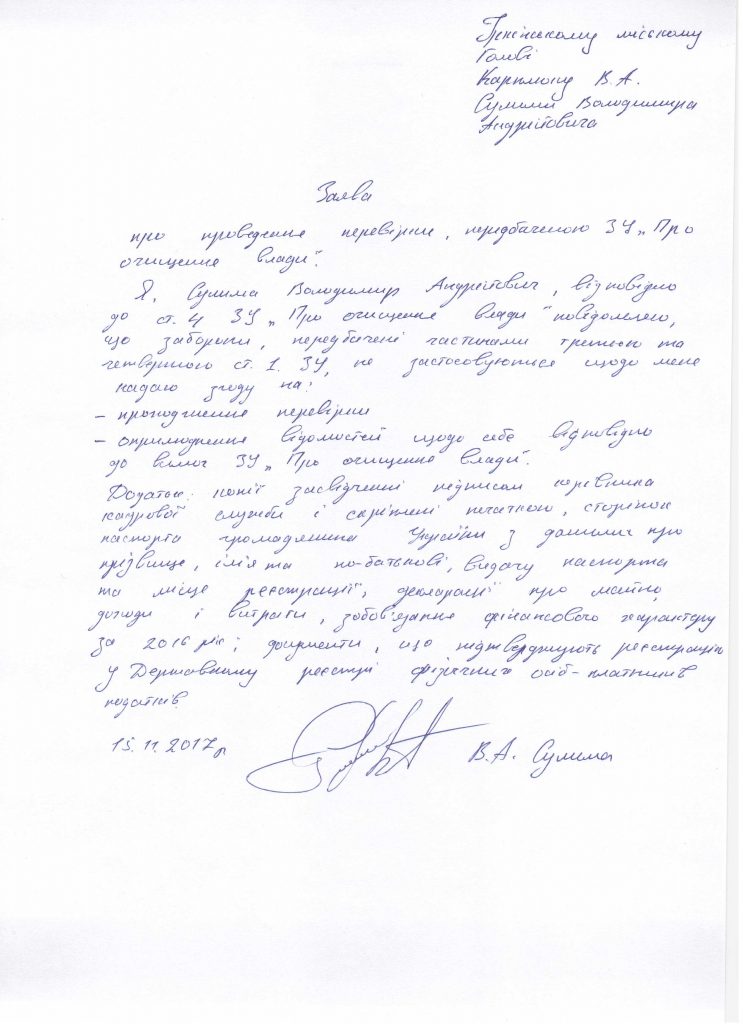 Ірпінському міському
Голові
Карплюку В.А.
Сулими Володимира
Андрійовича
Заява
про проведення перевірки, передбаченою ЗУ „Про
очищення влади".
Я, Сулима Володимир Андрійович, відповідно
до ст. 4 ЗУ „Про очищення влади" повідомляю,
що заборони, передбачені частинами третьою та
четвертою ст. 1. ЗУ, не застосовуються щодо мене
надаю згоду на:
– проходження перевірки
– оприлюднення відомостей щодо себе відповідно
до вимог ЗУ „Про очищення влади".
Додаток: копії засвідченні підписом керівника
кадрової служби і скріплені печаткою, сторінок
паспорта громадянина України з даними про
прізвище, ім'я та по-батькові, видачу паспорта
та місце реєстрації, декларації про майно,
доходи і витрати, зобов'язання фінансового характеру
за 2016 рік; документи, що підтверджують реєстрацію
у Державному реєстрі фізичних осіб-платників
податків.
15.11.2017р
В.А. Сулима